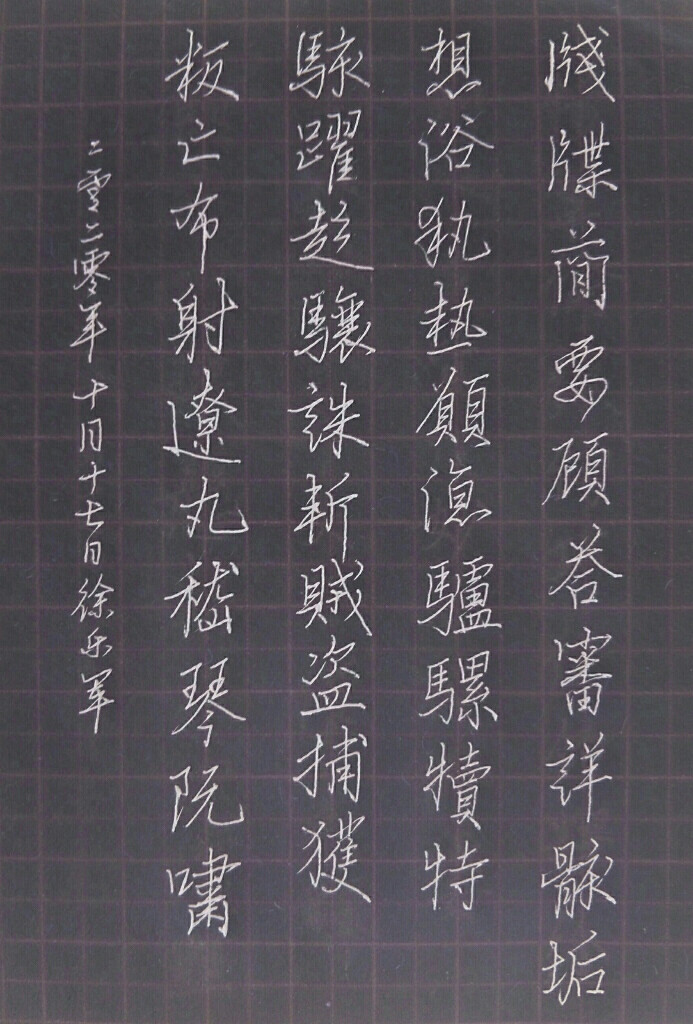 牋牒簡要顧荅審詳骸垢
想浴執熱願涼驢騾犢特
駭躍超驤誅斬賊盜捕獲
叛亡布射遼丸嵇琴阮嘯
二零二零年十月十七日徐乐军